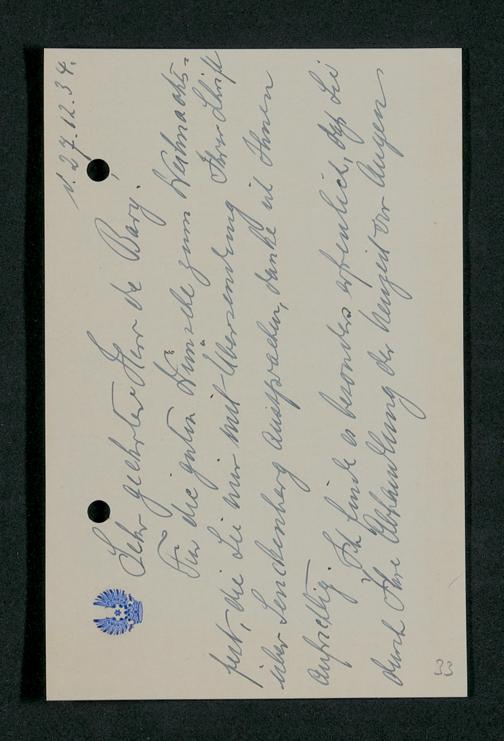 d. 27.12.34.
Sehr geehrter Herr de Bary.
Für die guten Wünsche zum Weihnachts-
fest, die Sie mir mit Übersendung Ihrer Schrift
über Senckenberg aussprachen, danke ich Ihnen
aufrichtig. Ich finde es besonders erfreulich, daß Sie
durch Ihre Abhandlung der Neuzeit vor Augen
33